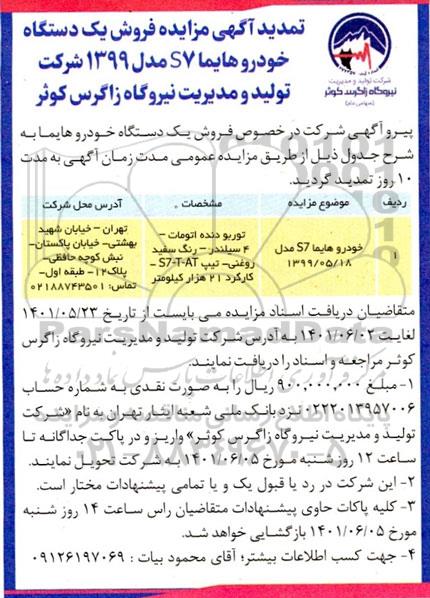 تمدید آگهی مزایده فروش یک دستگاه
خودرو هایما S7 مدل ۱۳۹۹ شرکت
تولید و مدیریت نیروگاه زاگرس کوثر
شرکت تولید و مدیریت
نیروگاه زاگرس کوثر
(سهامی عام)
پیرو آگهی شرکت در خصوص فروش یک دستگاه خودرو هایما به
شرح جدول ذیل از طریق مزایده عمومی مدت زمان آگهی به مدت
۱۰ روز تمدید گردید.
ردیف موضوع مزایده مشخصات آدرس محل شرکت
۱
خودرو هایما S7 مدل
۱۳۹۹/۰۵/۱۸
توربو دنده اتومات -
۴ سیلندر - رنگ سفید
روغنی- تیپ S7-T-AT -
کارکرد ۲۱ هزار کیلومتر
تهران - خیابان شهید
بهشتی- خیابان پاکستان-
نبش کوچه حافظی-
پلاک۱۲- طبقه اول-
تماس: ۰۲۱۸۸۷۴۳۵۰۱
متقاضیان دریافت اسناد مزایده می بایست از تاریخ ۱۴۰۱/۰۵/۲۳
لغایت ۱۴۰۱/۰۶/۰۲ به آدرس شرکت تولید و مدیریت نیروگاه زاگرس
کوثر مراجعه و اسناد را دریافت نمایند.
۱- مبلغ ۹۰۰,۰۰۰,۰۰۰ ریال را به صورت نقدی به شماره حساب
۰۲۲۲۰۱۳۹۵۷۰۰۶ نزد بانک ملی شعبه ایثار تهران به نام «شرکت
تولید و مدیریت نیروگاه زاگرس کوثر» واریز و در پاکت جداگانه تا
ساعت ۱۲ روز شنبه مورخ ۱۴۰۱/۰۶/۰۵ به شرکت تحویل نمایند.
۲- این شرکت در رد یا قبول یک و یا تمامی پیشنهادات مختار است.
۳- کلیه پاکات حاوی پیشنهادات متقاضیان راس ساعت ۱۴ روز شنبه
مورخ ۱۴۰۱/۰۶/۰۵ بازگشایی خواهد شد.
۴- جهت کسب اطلاعات بیشتر؛ آقای محمود بیات : ۰۹۱۲۶۱۹۷۰۶۹